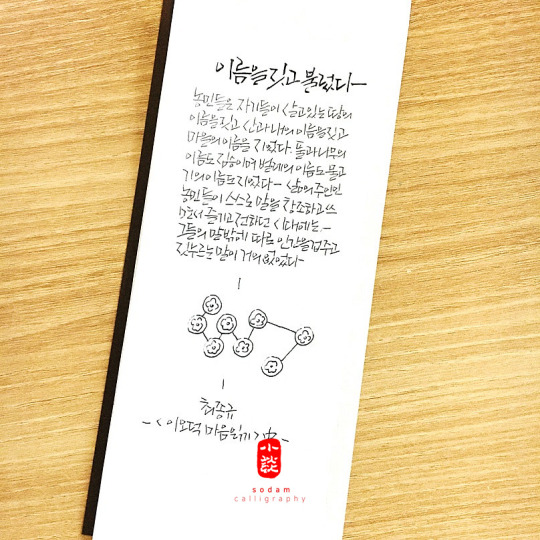 이름을 짓고 불렀다
농민들은 자기들이 살고있는 땅의
이름을 짓고 산과 내의 이름을 짓고
마을의 이름을 지었다. 풀과 나무의
이름도 짐승이며 벌레의 이름도 물고
기의 이름도 지었다 삶의 주인인
농민들이 스스로 말을 창조하고 쓰
면서 즐기고 전하던 시대에는
그들의 말밖에 따로 인간을 겁주고
짓누르는 말이 거의 없었다
최종규
<이오덕 마음 읽기> 中
小談
sodam
calligraphy